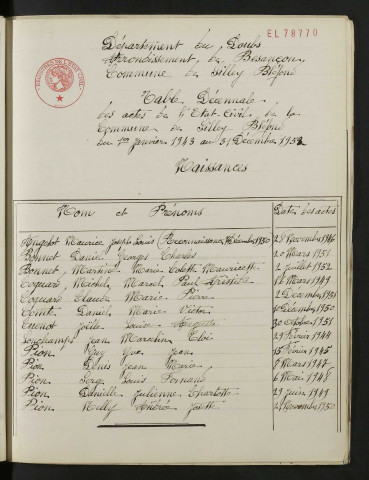 EL 78770
Département du Doubs
Arrondissement de Besançon
Commune de Silley Bléfond
Table Décennale
des actes de l'Etat-Civil de la
Commune de Silley Bléfond
du 1er janvier 1943 au 31 Décembre 1952
Naissances
Nom et Prénoms Date des actes
Maurice Joseph Louis (Reconnaissance 1950) 28 Novembre 1946
Bonnet Daniel Georges Charles 20 Mars 1951
Bonnet Marie Colette Mauricette 2 Juillet 1952
Coquard Michel Marcel Paul 12 Mars 1949
Coquard Claude Marie Pierre 2 Décembre 1951
Comte Daniel Marie Victor Décembre 1950
Cuenot Joëlle Louise 30 Octobre 1951
Jean Marcelin Eloi 29 Février 1944
Pion Guy Yve Jean 15 Février 1945
Pion Denis Jean Marie 8 Mars 1947
Pion Serge Louis Fernand 6 Mai 1948
Pion Danielle Julienne Charlotte 29 Juin 1949
Pion Nelly Andrée Josette 2 Novembre 1950